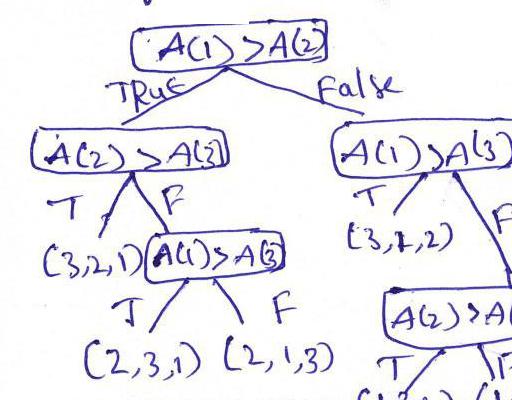 A(1) > A(2)
TRUE False
A(2) > A(3) A(1) > A(3)
T F T F
(3,2,1) A(1) > A(3 (3,1,2)
T F A(2) > A(
(2,3,1) (2,1,3) T F